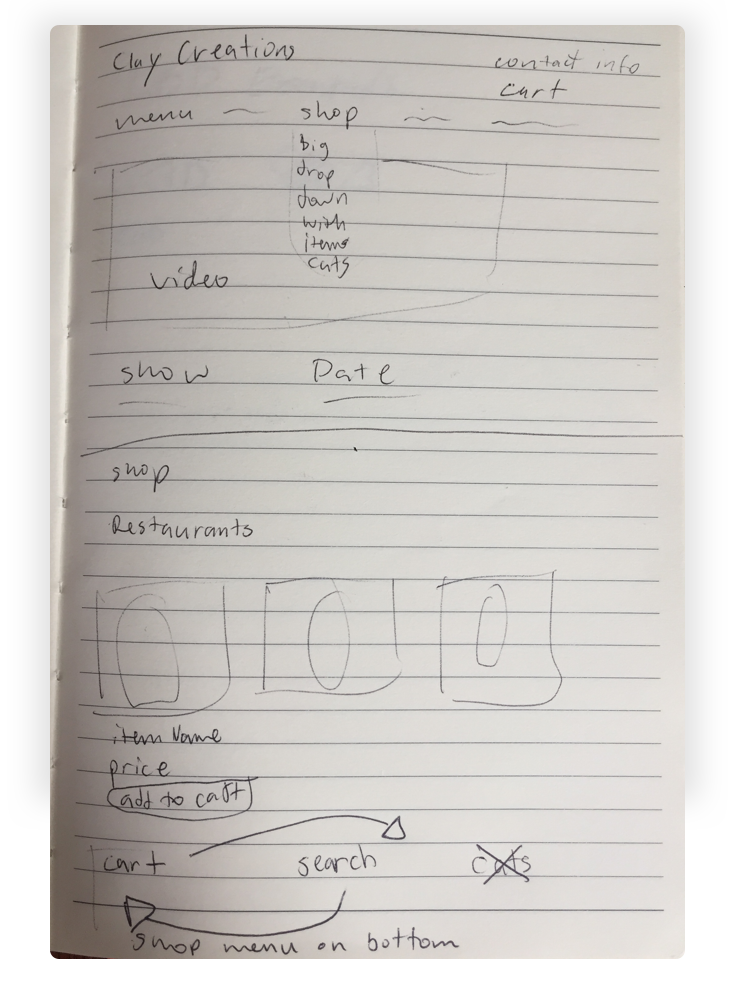 Clay Creations
contact info
cart
menu shop
big
drop
down
with
items
cats
video
show Date
shop
Restaurants
item Name
price
add to cart
cart search cats
shop menu on bottom